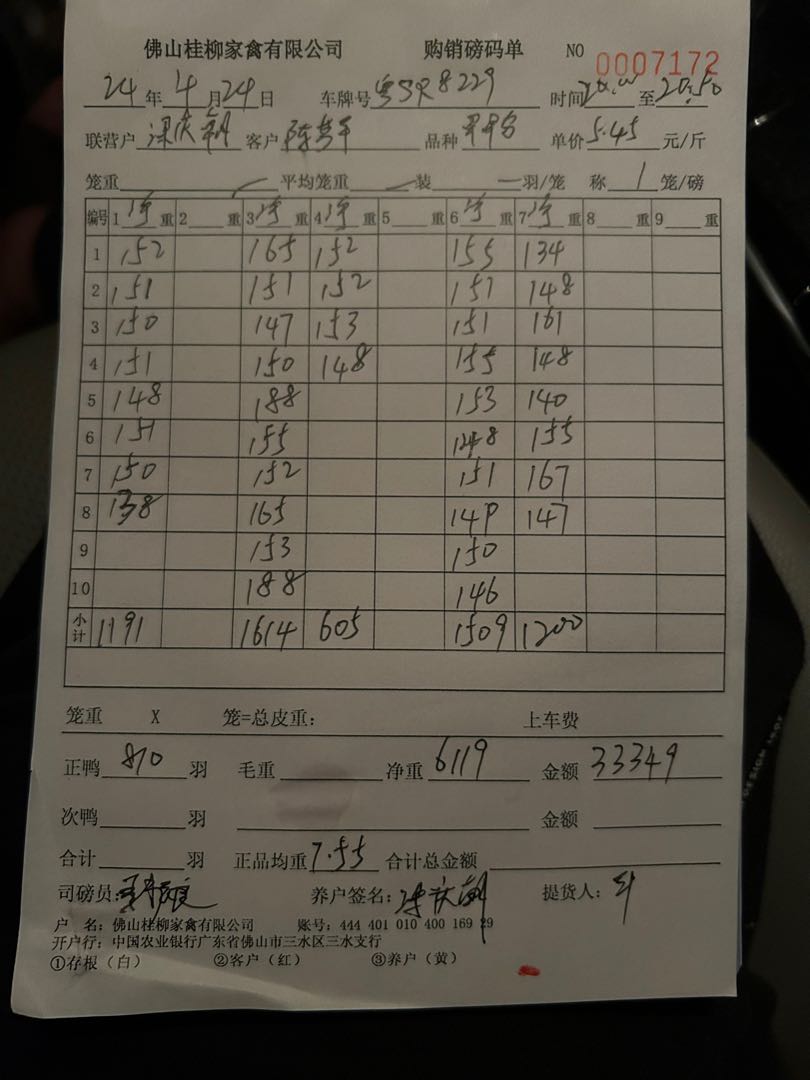 佛山桂柳家禽有限公司 购销磅码单 NO 0007172
24年4月24日 车牌号 粤SR8229 时间 至20:50
联营户 梁庆 客户 陈 品种 单价5.45元/斤
笼重 平均笼重 装 羽/笼 称1笼/磅
编号 1净重 2 重 3净重 4净重 5 重 6净重 7净重 8 重 9 重
1 152 165 152 155 134
2 151 151 152 151 148
3 150 147 153 151 161
4 151 150 148 155 148
5 148 188 153 140
6 151 155 148 155
7 150 152 151 167
8 138 165 149 147
9 153 150
10 188 146
小计 1191 1614 605 1509 1200
笼重 X 笼=总皮重: 上车费
正鸭 810 羽 毛重 净重 6119 金额 33349
次鸭 羽 金额
合计 羽 正品均重 7.55 合计总金额
司磅员: 养户签名: 提货人:
户 名: 佛山桂柳家禽有限公司 账号: 444 401 010 400 169 29
开户行: 中国农业银行广东省佛山市三水区三水支行
①存根(白) ②客户(红) ③养户(黄)